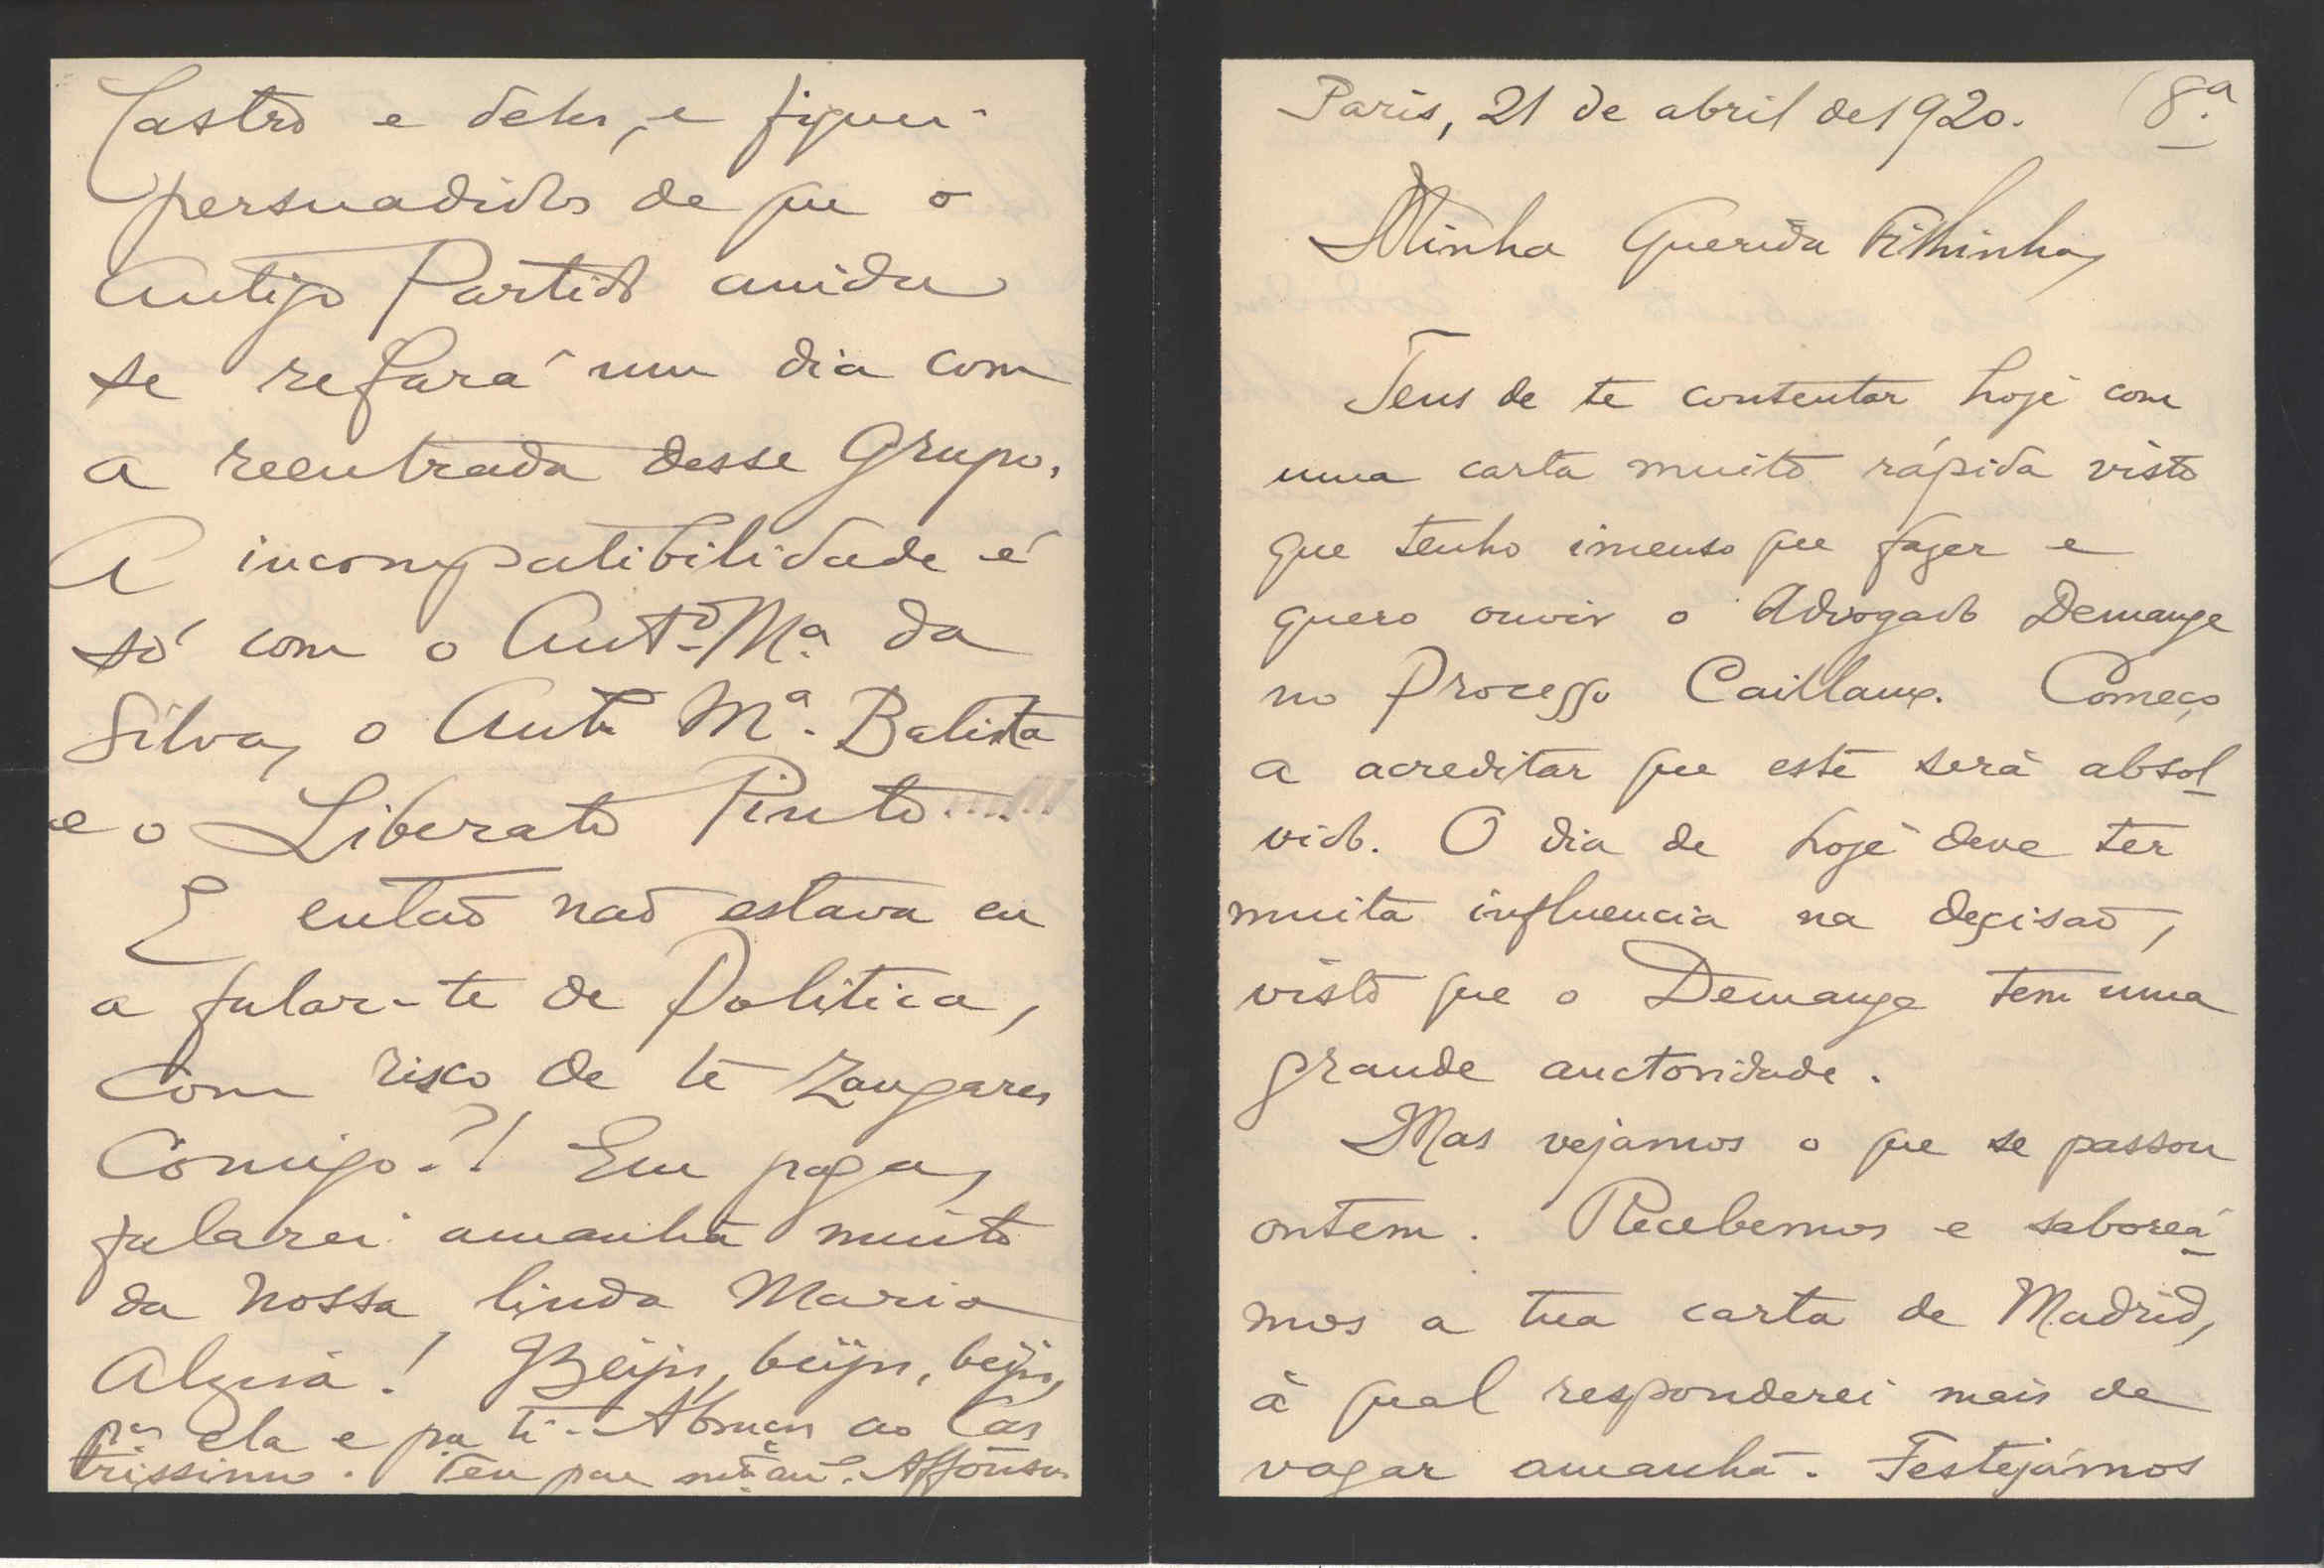 Paris, 21 de abril de 1920. (8.ª
Minha Querida Filhinha,
Tens de te contentar hoje com
uma carta muito rápida visto
que tenho imenso que fazer e
quero ouvir o Advogado Demange
no Processo Caillaux. Começo
a acreditar que este será absol
vido. O dia de hoje deve ter
muita influencia na decisão,
visto que o Demange tem uma
grande auctoridade.
Mas vejamos o que se passou
ontem. Recebemos e saboreá
mos a tua carta de Madrid,
à qual responderei mais de
vagar amanhã. Festejámos
Castro e deles, e fiquei
persuadido de que o
Antigo Partido ainda
se refará um dia com
a reentrada desse Grupo.
A incompatibilidade é
só com o Ant.º M.ª da
Silva, o Ant.º M.ª Batista
e o Liberato Pinto......!!!
E então não estava eu
a falar-te de Politica,
com risco de te zangares
Comigo?! Em paga,
falarei amanhã muito
da nossa linda Maria
Alzira! Beijos, beijos, beijos,
pª ela e pª ti. Abraços ao Cas
trissimo. Teu pae mtº amº. Affonso